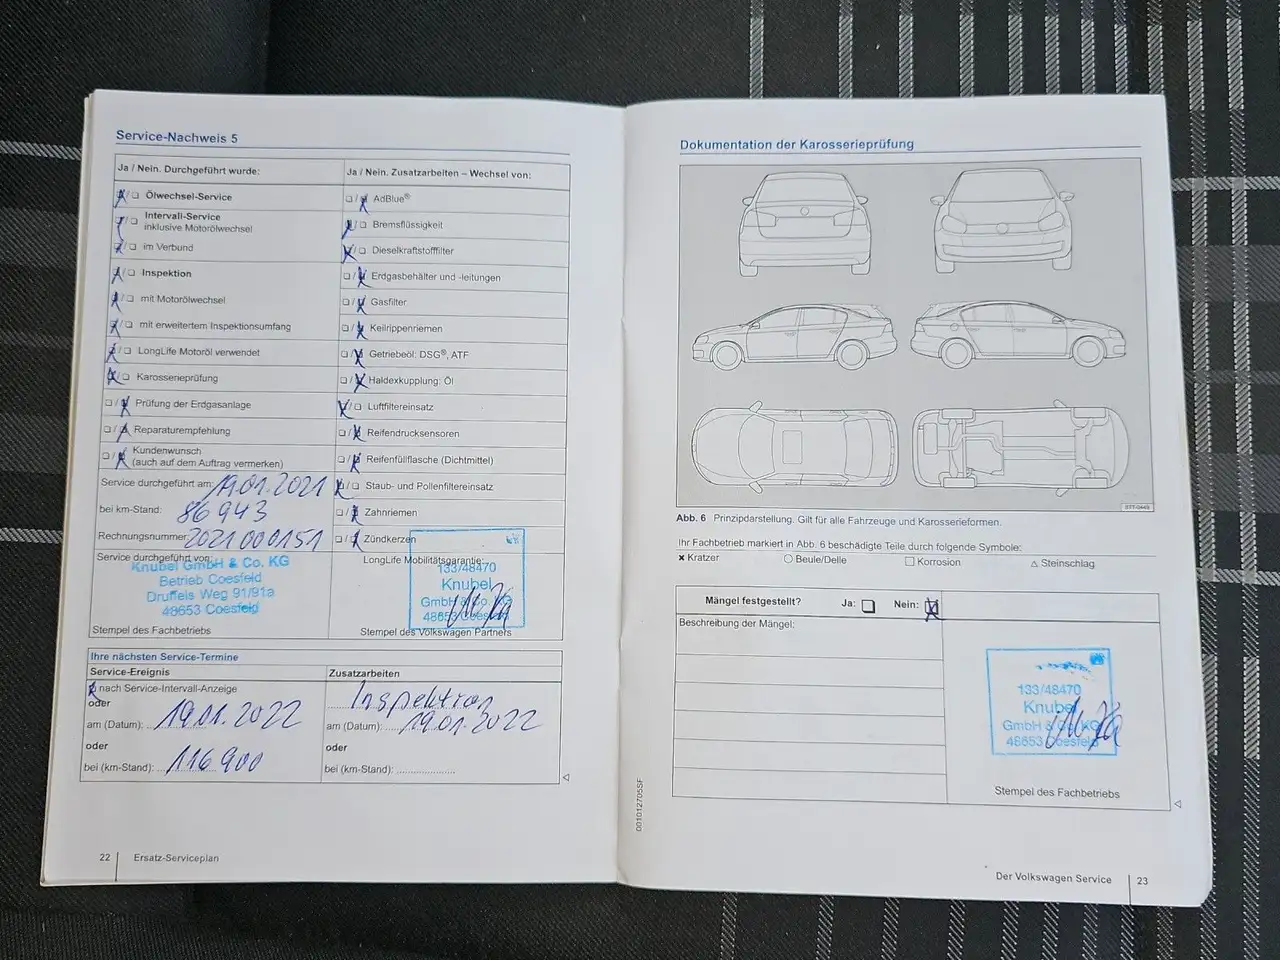 Service-Nachweis 5
Ja / Nein. Durchgeführt wurde:
Ölwechsel-Service
Intervall-Service
inklusive Motorölwechsel
im Verbund
Inspektion
mit Motorölwechsel
mit erweitertem Inspektionsumfang
LongLife Motoröl verwendet
Karosserieprüfung
Prüfung der Erdgasanlage
Reparaturempfehlung
Kundenwunsch
(auch auf dem Auftrag vermerken)
Service durchgeführt am: 19.01.2021
bei km-Stand: 86943
Rechnungsnummer: 2021000151
Service durchgeführt von:
Knubel GmbH & Co. KG
Betrieb Coesfeld
Druffels Weg 91/91a
48653 Coesfeld
Stempel des Fachbetriebs
Ja / Nein. Zusatzarbeiten – Wechsel von:
AdBlue®
Bremsflüssigkeit
Dieselkraftstofffilter
Erdgasbehälter und -leitungen
Gasfilter
Keilrippenriemen
Getriebeöl: DSG®, ATF
Haldexkupplung: Öl
Luftfiltereinsatz
Reifendrucksensoren
Reifenfüllflasche (Dichtmittel)
Staub- und Pollenfiltereinsatz
Zahnriemen
Zündkerzen
LongLife Mobilitätsgarantie:
133/48470
Knubel
GmbH & Co. KG
48653 Coesfeld
Stempel des Volkswagen Partners
Ihre nächsten Service-Termine
Service-Ereignis
nach Service-Intervall-Anzeige
oder
am (Datum): 19.01.2022
oder
bei (km-Stand): 116900
Zusatzarbeiten
Inspektion
am (Datum): 19.01.2022
oder
bei (km-Stand):
22 Ersatz-Serviceplan
Dokumentation der Karosserieprüfung
Abb. 6 Prinzipdarstellung. Gilt für alle Fahrzeuge und Karosserieformen.
Ihr Fachbetrieb markiert in Abb. 6 beschädigte Teile durch folgende Symbole:
Kratzer Beule/Delle Korrosion Steinschlag
Mängel festgestellt? Ja: Nein:
Beschreibung der Mängel:
133/48470
Knubel
GmbH & Co. KG
48653 Coesfeld
Stempel des Fachbetriebs
001012705SF
Der Volkswagen Service 23